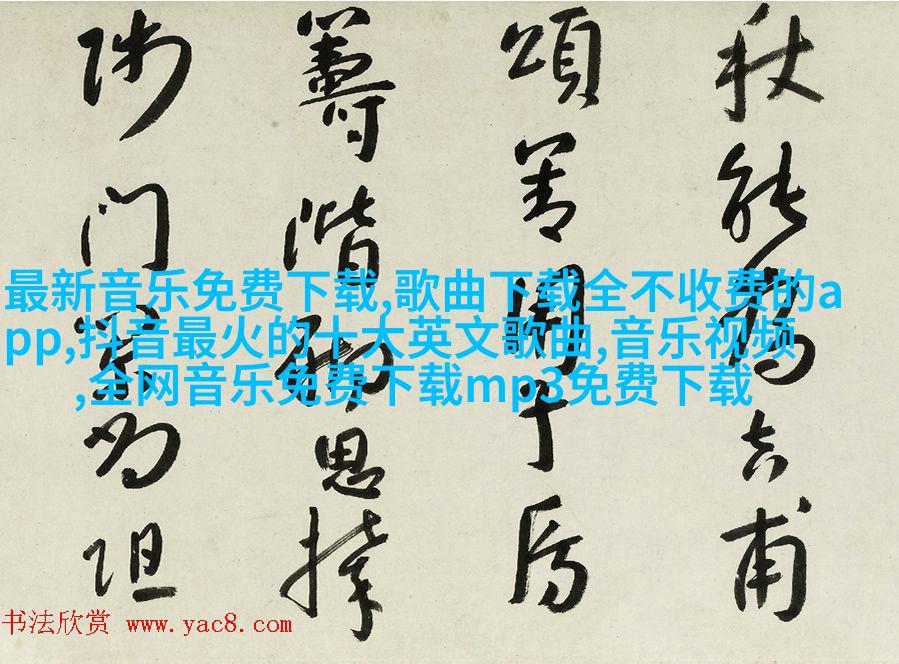 能吉甫
頌善于房
籌階思
门为阻
最新音乐免费下载,歌曲下载全不收费的a
pp,抖音最火的十大英文歌曲,音乐视频
,全网音乐免费下载mp3免费下载
书法欣赏 www.yac8.com